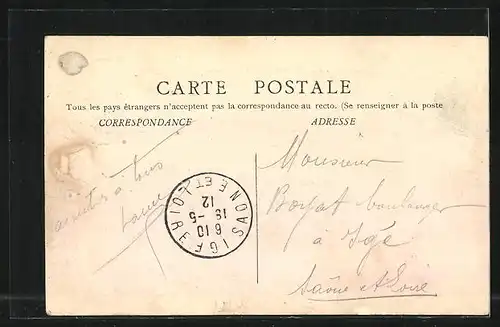 CARTE POSTALE
Tous les pays étrangers n'acceptent pas la correspondance au recto. (Se renseigner à la poste
CORRESPONDANCE
ADRESSE
amitiés à tous
Monsieur
boulanger
à Igé
Saône et Loire
IGÉ
SAONE ET LOIRE
6 10
18 -5
12